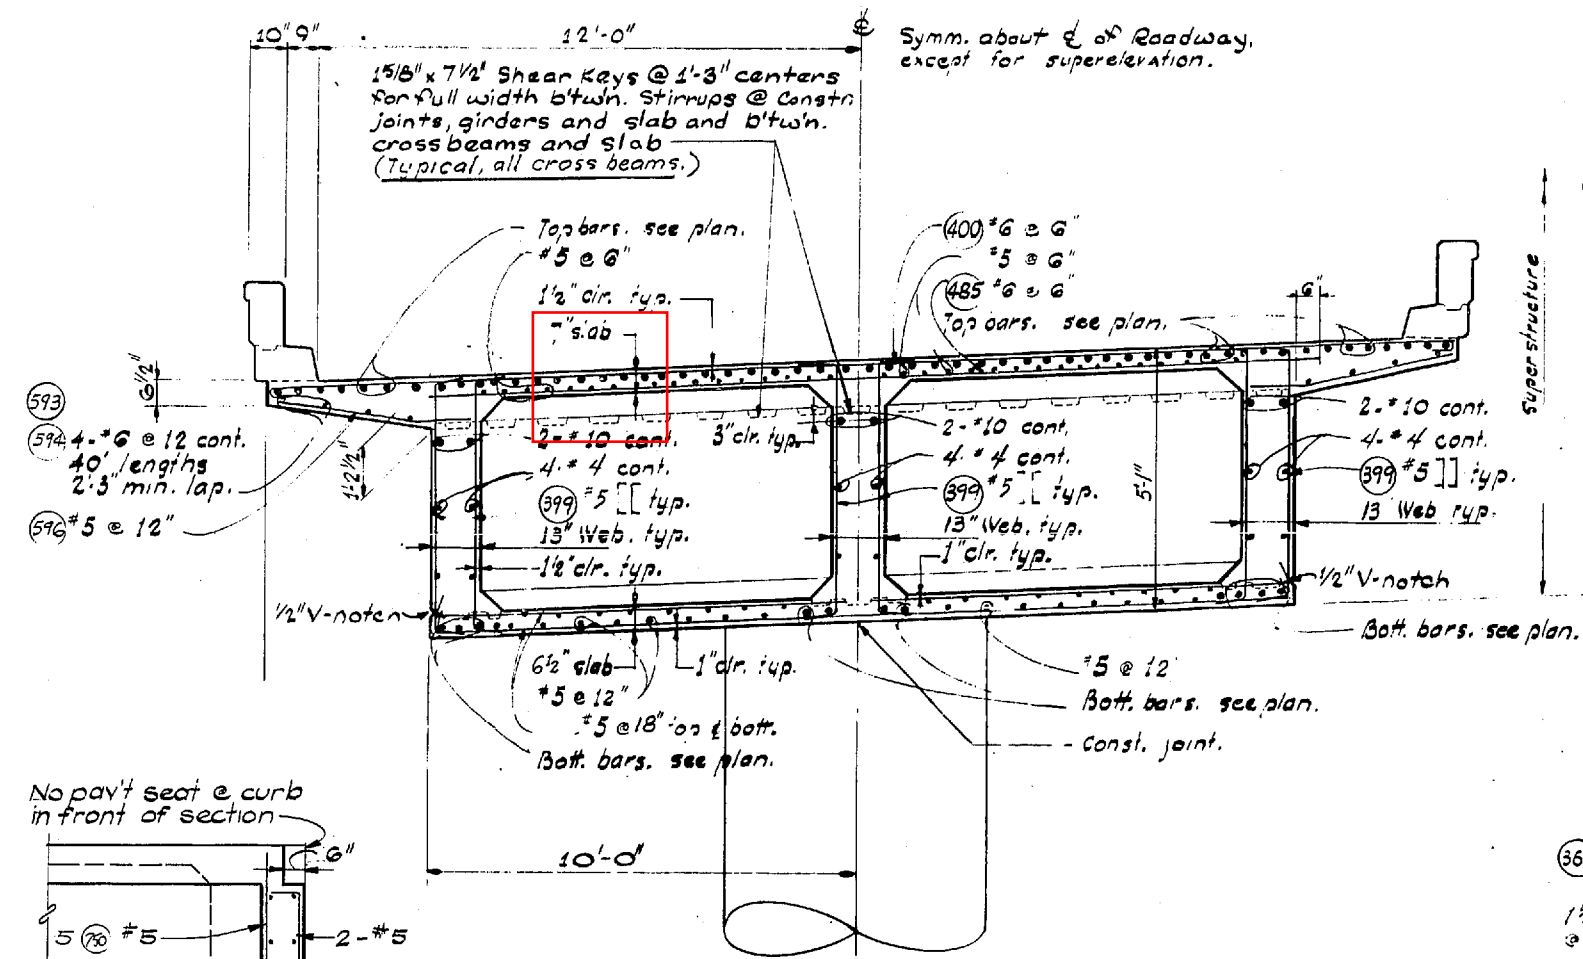 10" 9"
12'-0"
℄
Symm. about ℄ of Roadway,
except for superelevation.
15/8" x 7 1/2" Shear Keys @ 1'-3" centers
for full width b'tw'n. Stirrups @ Constr.
joints, girders and slab and b'tw'n.
cross beams and slab
(Typical, all cross beams.)
Top bars. see plan.
#5 @ 6"
1 1/2" clr. typ.
7" slab
400 #6 @ 6"
#5 @ 6"
485 #6 @ 6"
Top bars. see plan.
6"
Superstructure
6 1/2"
593
594 4-#6 @ 12 cont.
40' lengths
2'-3" min. lap.
596 #5 @ 12"
1'-2 1/2"
2-#10 cont.
4-#4 cont.
399 #5 [[ typ.
13" Web. typ.
1 1/2" clr. typ.
3" clr. typ.
2-#10 cont.
4-#4 cont.
399 #5 [[ typ.
13" Web typ.
1" clr. typ.
5'-1"
2-#10 cont.
4-#4 cont.
399 #5 ]] typ.
13 Web typ.
1/2" V-notch
1/2" V-notch
Bott. bars. see plan.
6 1/2" slab
1" clr. typ.
#5 @ 12"
#5 @ 18" top & bott.
Bott. bars. see plan.
#5 @ 12"
Bott. bars. see plan.
Const. joint.
10'-0"
No pav't seat @ curb
in front of section
6"
5 750 #5
2-#5
36
@